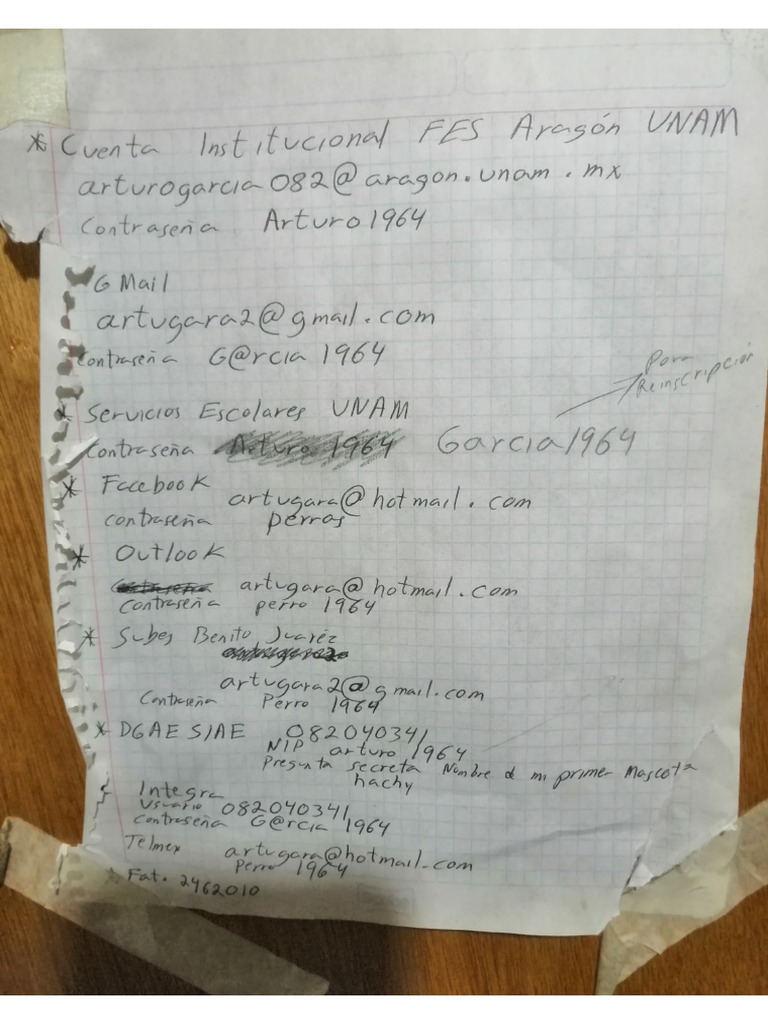 * Cuenta Institucional FES Aragón UNAM
arturogarcia082@aragon.unam.mx
Contraseña Arturo1964
GMail
artugara2@gmail.com
Contraseña G@rcia 1964
Para
Reinscripción
* Servicios Escolares UNAM
Contraseña Arturo 1964 Garcia1964
* Facebook artugara@hotmail.com
contraseña perros
* Outlook
contraseña artugara@hotmail.com
contraseña perro 1964
* Subes Benito Juaréz
artugara2@gmail.com
Contraseña Perro 1964
* DGAE SIAE 082040341
NIP arturo 1964
Pregunta secreta Nombre de mi primer Mascota
hachy
Integra
Usuario 082040341
Contraseña G@rcia 1964
Telmex artugara@hotmail.com
Perro 1964
* Fat. 2462010